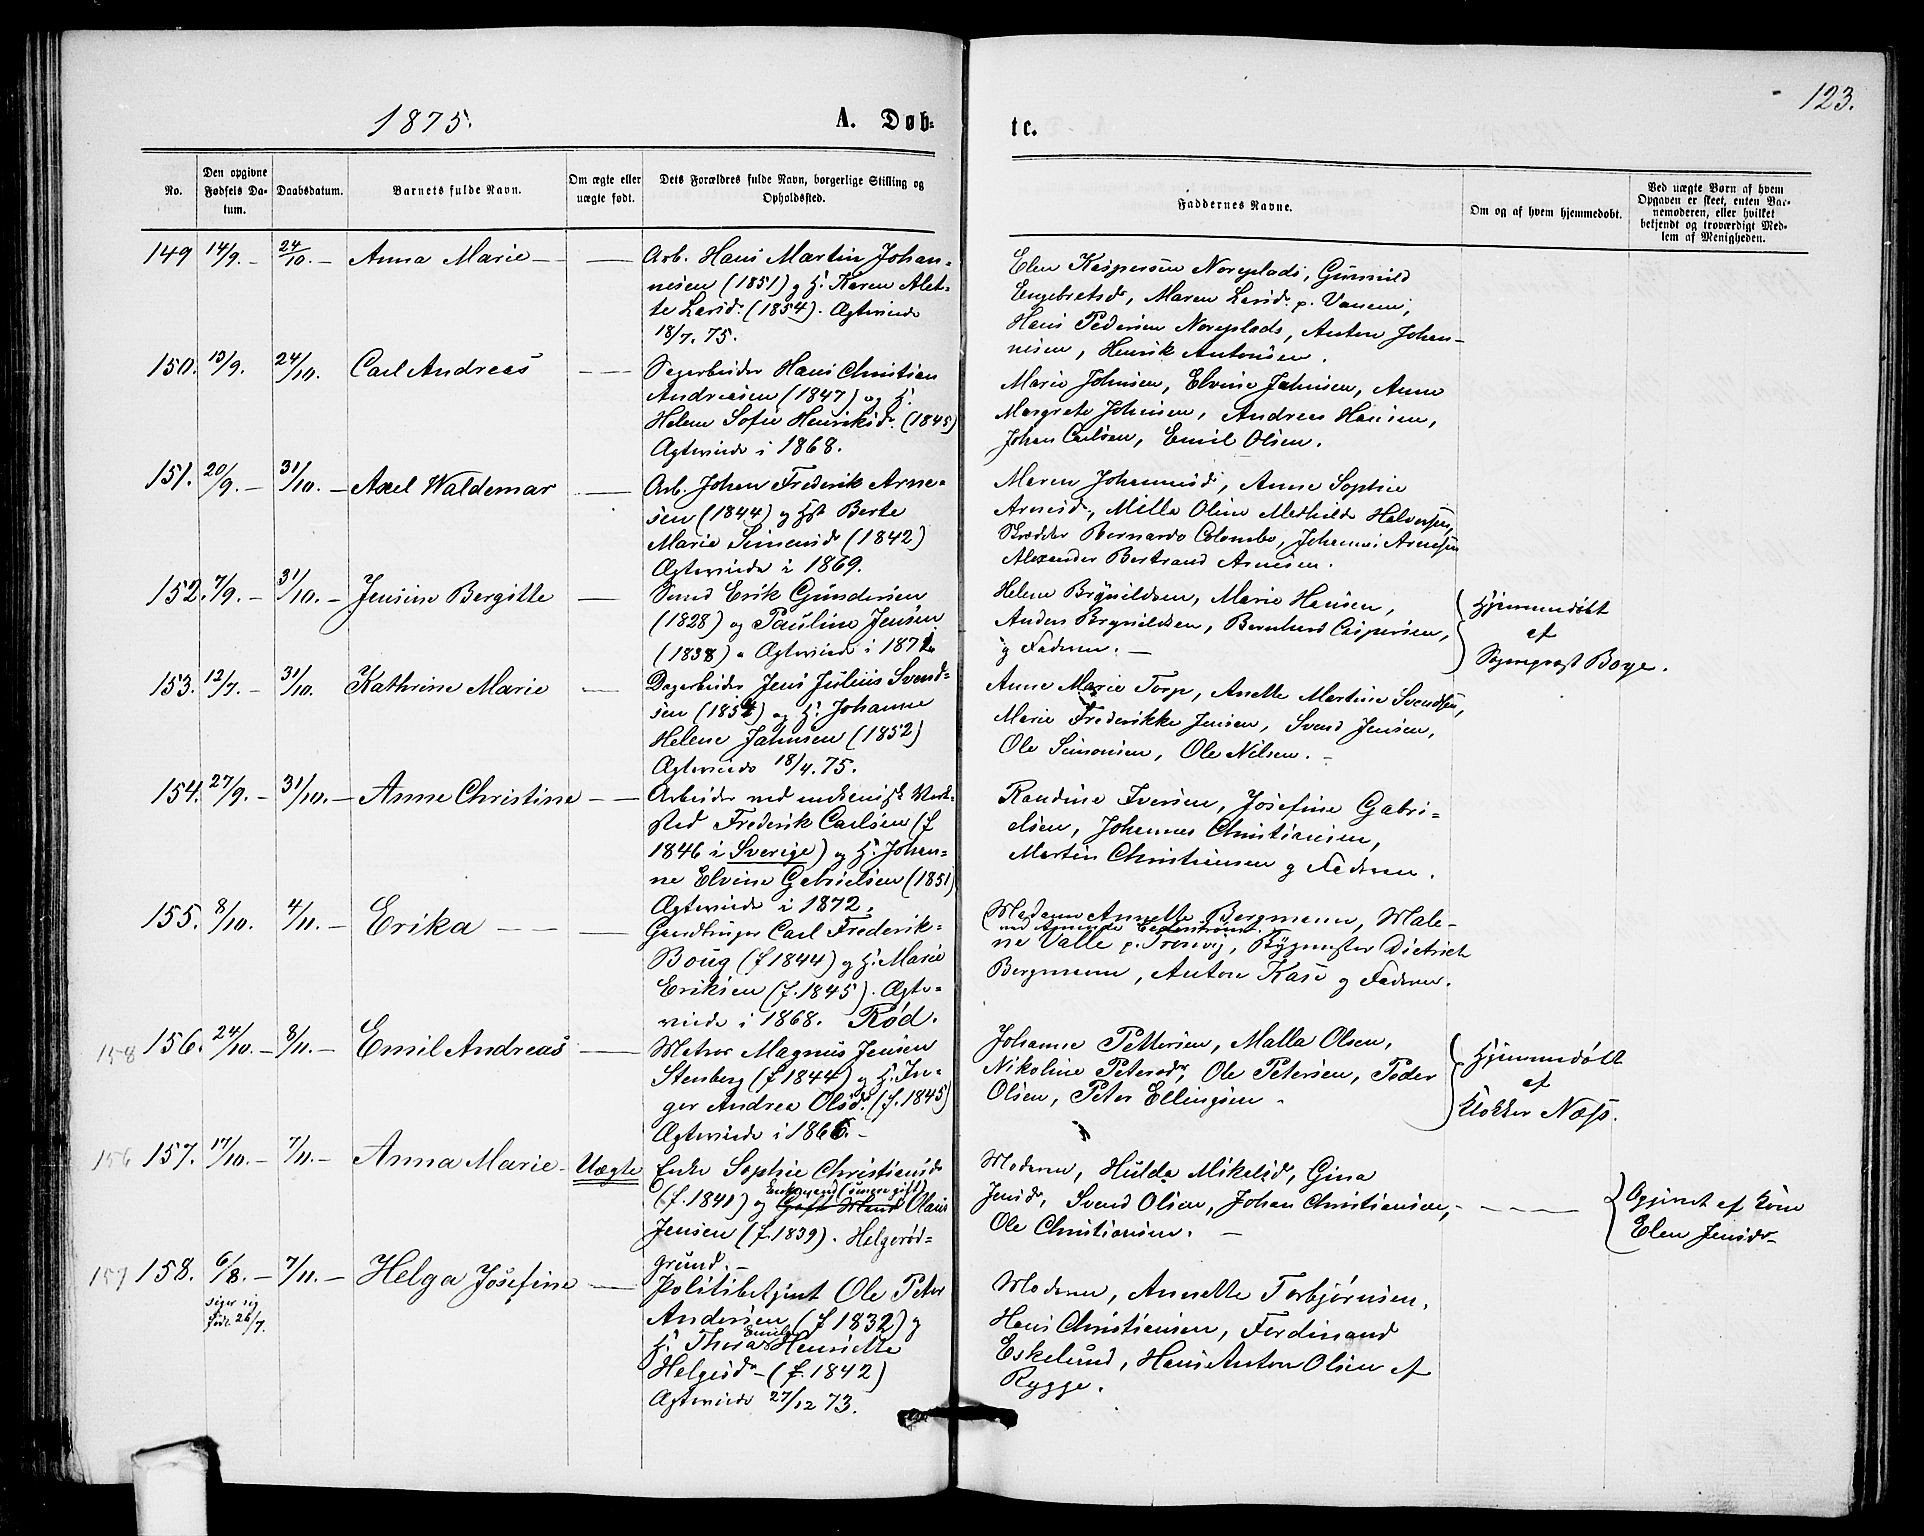 1875.
A. Døb-
te.
123.
No.
Den opgivne
Fødsels Da-
tum.
Daabsdatum.
Barnets fulde Navn.
Om ægte eller
uægte født.
Dets Forældres fulde Navn, borgerlige Stilling og
Opholdssted.
Faddernes Navne.
Om og af hvem hjemmedøbt.
Ved uægte Børn af hvem
Opgaven er skeet, enten Bar-
nemoderen, eller hvilket
bekjendt og troværdigt Med-
lem af Menigheden.
149 14/9. - 24/10. - Anna Marie - - Arb. Hans Martin Johan-
nesen (1851) og H. Karen Alet-
te Larsd. (1854). Ægteviede
18/7. 75.
Elen Kaspersen Noreplads, Gunnild
Engebretsd, Maren Larsd. p. Vanem,
Hans Pedersen Noreplads, Anton Johan-
nesen, Henrik Antonsen.
150. 13/9. 24/10. Carl Andreas - - Sagarbeider Hans Christian
Andreasen (1847) og H.
Helene Sofie Henriksd. (1845)
Ægteviede i 1868.
Marie Johnsen, Elvine Jahnsen, Anne
Margrete Johnsen, Andreas Hansen,
Johan Carlsen, Emil Olsen.
151. 20/9. - 31/10. - Axel Waldemar - Arb. Johan Frederik Arne-
sen (1844) og Hst Berte
Marie Simensd (1842)
Ægteviede i 1869.
Maren Johannesd, Anne Sophie
Arnesd, Milla Oline Mathilde Halvorsen,
Skrædder Bernardo Colombo, Johannes Arnesen
Alexander Bertrand Arnesen.
152. 7/9. - 31/10. - Jensine Bergitte - Smed Erik Gundersen
(1828) og Pauline Jensen
(1838). Ægteviede i 1871.
Helene Brynildsen, Marie Hansen,
Anders Brynildsen, Bernhard Caspersen,
og Faderen. -
Hjemmedøbt
af
Sogneprest Boye.
153. 12/7. - 31/10. Kathrine Marie - Dagarbeider Jens Julius Svend-
sen (1854) og H. Johanne
Helene Jahnsen (1852)
Ægteviede 18/4. 75.
Anne Marie Torp, Anette Martine Svendsen,
Marie Frederikke Jensen, Svend Jensen,
Ole Simonsen, Ole Nilsen. -
154. 27/9. - 31/10. - Anne Christine - - Arbeider ved mekanisk Værk-
sted Frederik Carlsen (f
1846 i Sverige) og H. Johan-
ne Elvine Gabrielsen (1851)
Ægteviede i 1872.
Randine Iversen, Josefine Gabri-
elsen, Johannes Christiansen,
Martin Christiansen og Faderen.
155. 8/10. 4/11. - Erika - - - Gaardbruger Carl Frederik
Boug (f 1844) og H. Marie
Eriksen (f. 1845). Ægte-
viede i 1868. Rød.
Madame Annette Bergmann, Male-
ne Valle p. Trosvig, Bygmester Dietrich
Bergmann, Anton Kase og Faderen.
158 156. 24/10. - 8/11. - Emil Andreas - Matros Magnus Jensen
Stenberg (f 1844) og H. In-
ger Andrea Olsd. (f. 1845)
Ægteviede i 1866. -
Johanne Pettersen, Malla Olsen,
Nikoline Petersdr, Ole Petersen, Peder
Olsen, Peter Ellingsen -
Hjemmedøbt
af
Klokker Næss.
156 157. 17/10. - 7/11. - Anna Marie - Uægte Enke Sophie Christiansd
(f. 1841) og Enkemand (umgogift) Olaus
Jensen (f. 1839). Helgerød-
grund. -
Moderen, Hulda Mikelsd, Gina
Jensd, Svend Olsen, Johan Christiansen, - - - -
Ole Christiansen. -
Opgivet af Kone
Elen Jensdr -
157 158. 6/8. - 7/11. - Helga Josefine - Politibetjent Ole Peter
siger sig
født 26/7.
Andersen (f 1832) og
H. Thora Emilie Henriette
Helgesdr - (f. 1842)
Ægteviede 27/12 73.
Moderen, Annette Torbjørnsen,
Hans Christiansen, Ferdinand
Eskelund, Hans Anton Olsen af
Rygge.